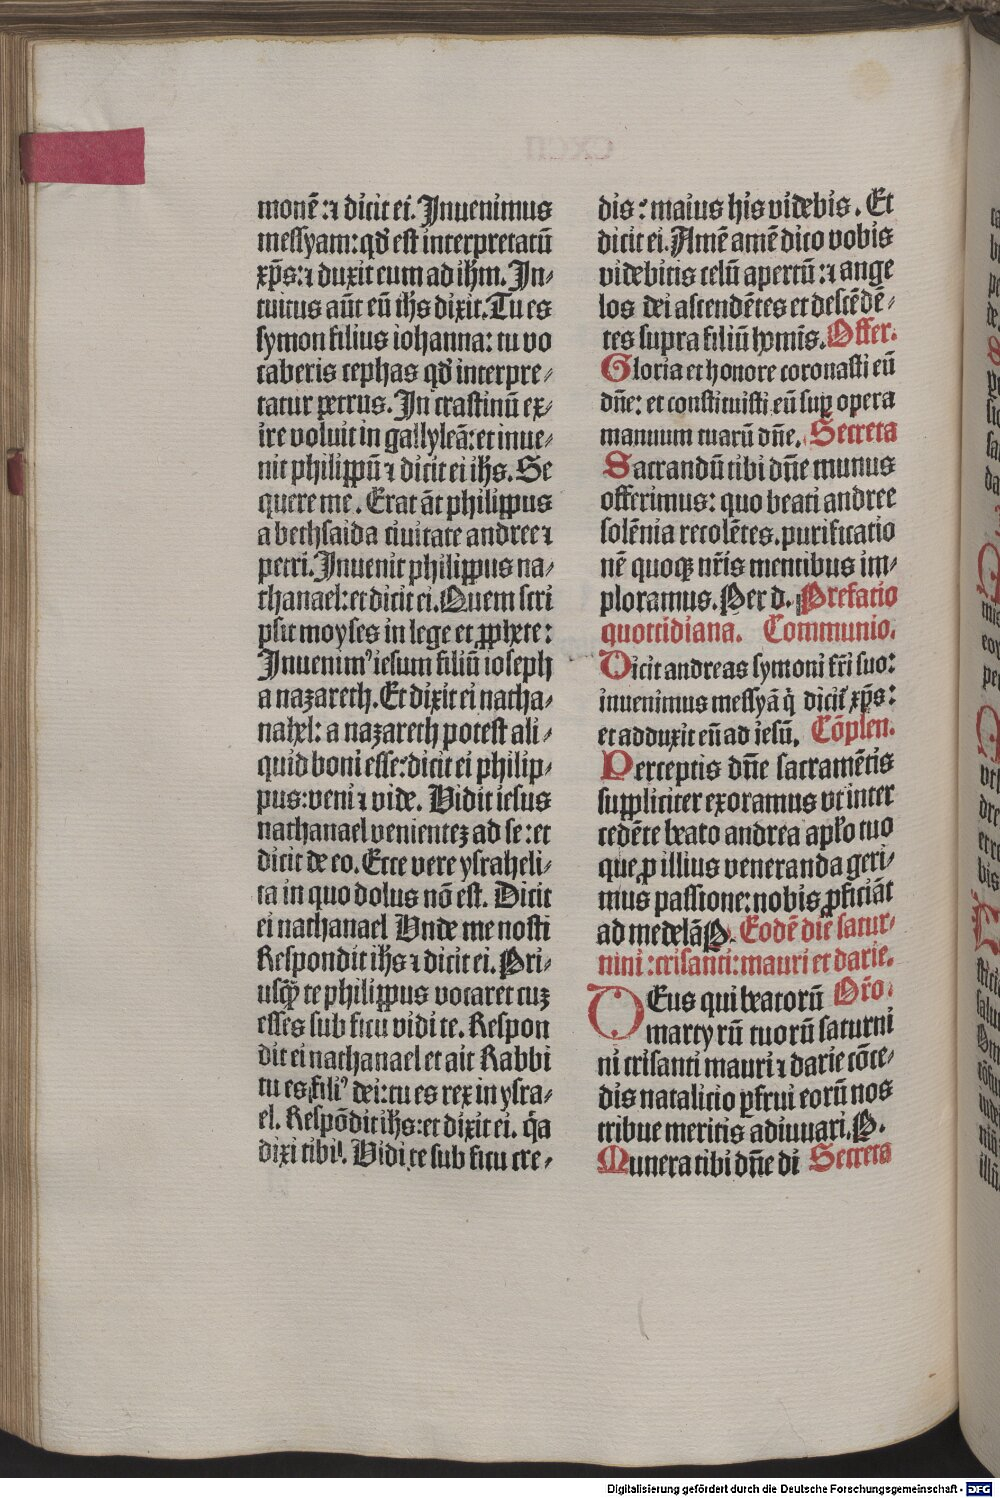 monē: ⁊ dicit ei. Inuenimus
messyam: qđ est interpretatū
xp̄s: ⁊ duxit eum ad ihm̄. In⸗
tuitus aūt eū ihs dixit. Tu es
symon filius iohanna: tu vo
caberis cephas qđ interpre⸗
tatur petrus. In crastinū ex⸗
ire voluit in gallyleā: et inue⸗
nit philippū ⁊ dicit ei ihs̄. Se
quere me. Erat āt philippus
a bethsaida ciuitate andree ⁊
petri. Inuenit philippus na⸗
thanael: et dicit ei. Quem scri
psit moyses in lege et ꝓphete:
Inuenimꝰ iesum filiū ioseph
a nazareth. Et dixit ei natha⸗
nahel: a nazareth potest ali⸗
quid boni esse: dicit ei philip⸗
pus: veni ⁊ vide. Vidit iesus
nathanael venientez ad se: et
dicit de eo. Ecce vere ysraheli⸗
ta in quo dolus nō est. Dicit
ei nathanael Unde me nosti
Respondit ihs̄ ⁊ dicit ei. Pri⸗
usq̄ te philippus vocaret cuz
esses sub ficu vidi te. Respon
dit ei nathanael et ait Rabbi
tu es filiꝰ dei: tu es rex in ysra⸗
el. Respōdit ihs̄: et dixit ei. q̄a
dixi tibi. Vidi te sub ficu cre⸗
dis: maius his videbis. Et
dicit ei. Amē amē dico vobis
videbitis celū apertū: ⁊ ange
los dei ascendētes et descēdē⸗
tes supra filiū homīs. Offer.
Gloria et honore coronasti eū
dn̄e: et constituisti eū sup̱ opera
manuum tuarū dn̄e. Secreta
Sacrandū tibi dn̄e munus
offerimus: quo beati andree
solēnia recolētes. purificatio
nē quoqꝫ nr̄is mentibus im⸗
ploramus. Per d. Prefatio
quottidiana. Communio.
Dicit andreas symoni fr̄i suo:
inuenimus messyā q̄ dicit᷑ xp̄s:
et adduxit eū ad iesū. Cōplen.
Perceptis dn̄e sacramētis
suppliciter exoramus vt inter
cedēte beato andrea apl̄o tuo
que ꝓ illius veneranda geri⸗
mus passione: nobis ꝓficiāt
ad medelā P. Eodē die satur⸗
nini: crisanti: mauri et darie.
Deus qui beatorū Or̄o.
martyrū tuorū saturni
ni crisanti mauri ⁊ darie cōce⸗
dis natalicio ꝑfrui eorū nos
tribue meritis adiuuari. P.
Munera tibi dn̄e di Secreta
Digitalisierung gefördert durch die Deutsche Forschungsgemeinschaft - DFG